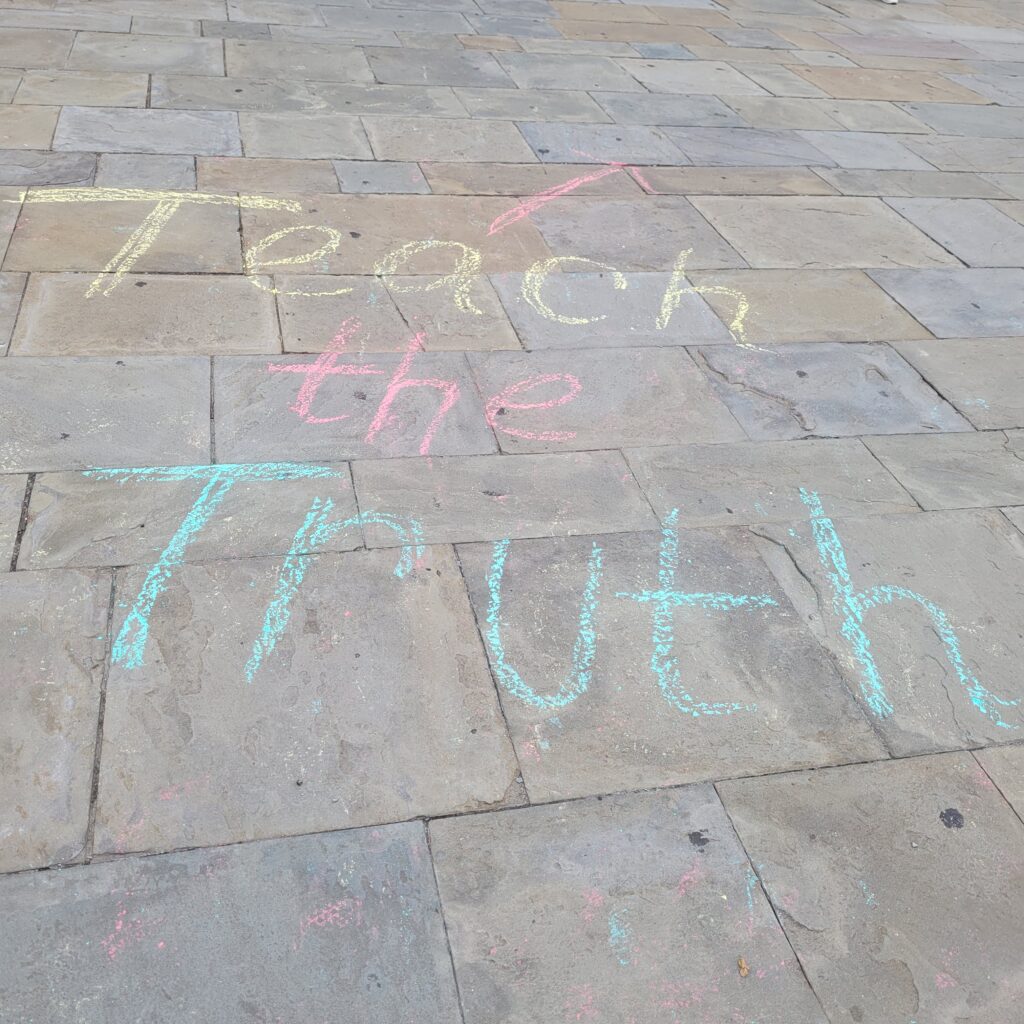 Teach
the
Truth